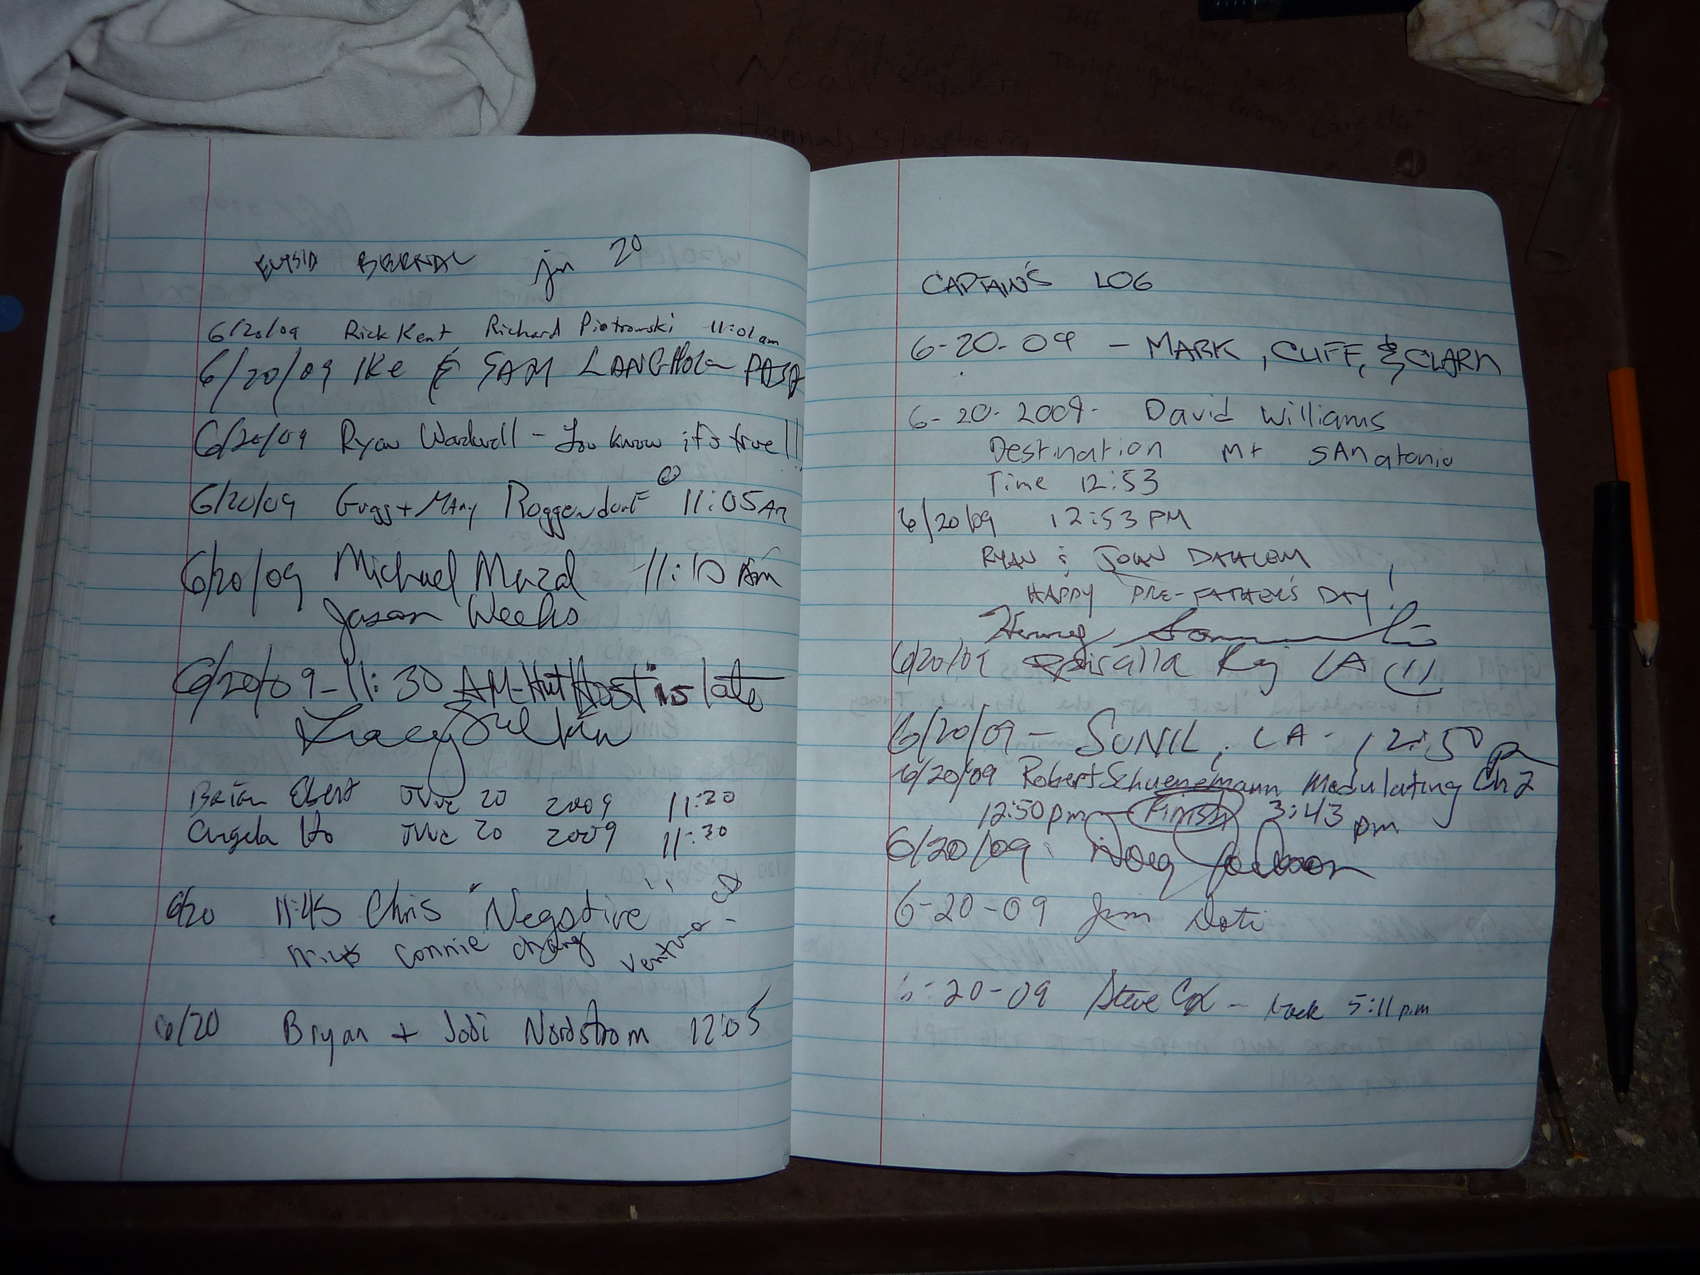 jun 20
6/20/09 Rick Kent Richard Piotrowski 11:01am
6/20/09 IKe & SAM LANGHOLZ PASA
6/20/09 Ryan Wardwell - You know it's true!!!
6/20/09 Gregg + Mary Roggendorf 11:05 AM
6/20/09 Michael Mazal 11:10 Am
Jason Weeks
6/20/09 - 11:30 AM - Hut Host is late
Tracy Sulkin
Brian Ebert June 20 2009 11:30
Angela Ho June 20 2009 11:30
6/20 11:45 Chris "Negative"
Connie Chang Ventura - CA
6/20 Bryan + Jodi Nordstrom 12:05
CAPTAIN'S LOG
6-20-09 - MARK, CLIFF, & CLARK
6-20-2009- David Williams
Destination Mt SAnatonio
Time 12:53
6/20/09 12:53 PM
RYAN & JOHN DAHLEM
HAPPY PRE-FATHER'S DAY!
6/20/09 Raj LA
6/20/09 - SUNIL, LA - 12:50 p
6/20/09 Robert Schuenemann Modulating Ch 2
12:50pm - Finish 3:43 pm
6/20/09
6-20-09 Jim
6-20-09 Steve Cox - back 5:11 pm